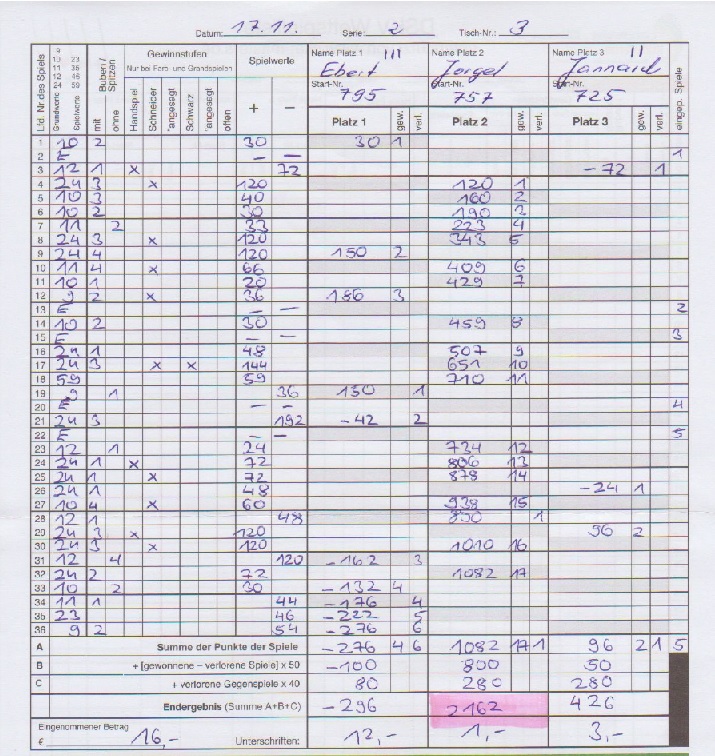 Datum: 17.11. Serie: 2 Tisch-Nr.: 3
Lfd. Nr des Spiels Grundwerte Spielwerte Buben/Spitzen Gewinnstufen Spielwerte Name Platz 1 III Name Platz 2 Name Platz 3 II eingep. Spiele
9 10 11 12 24 23 35 46 59 mit ohne Nur bei Farb- und Grandspielen Ebert Jorgel Jannard
Handspiel Schneider angesagt Schwarz angesagt offen + − Start-Nr. 795 Start-Nr. 757 Start-Nr. 725
Platz 1 gew. verl. Platz 2 gew. verl. Platz 3 gew. verl.
1 10 2 30 30 1
2 E — — 1
3 12 1 x 72 −72 1
4 24 3 x 120 120 1
5 10 3 40 160 2
6 10 2 30 190 3
7 11 2 33 223 4
8 24 3 x 120 343 5
9 24 4 120 150 2
10 11 4 x 66 409 6
11 10 1 20 429 7
12 9 2 x 36 186 3
13 E — — 2
14 10 2 30 459 8
15 E — — 3
16 24 1 48 507 9
17 24 3 x x 144 651 10
18 59 59 710 11
19 9 1 36 150 1
20 E — — 4
21 24 3 192 −42 2
22 E — — 5
23 12 1 24 734 12
24 24 1 x 72 806 13
25 24 1 x 72 878 14
26 24 1 48 −24 1
27 10 4 x 60 938 15
28 12 1 48 890 1
29 24 3 x 120 96 2
30 24 3 x 120 1010 16
31 12 4 120 −162 3
32 24 2 72 1082 17
33 10 2 30 −132 4
34 11 1 44 −176 4
35 23 46 −222 5
36 9 2 54 −276 6
A Summe der Punkte der Spiele −276 4 6 1082 17 1 96 2 1 5
B + [gewonnene − verlorene Spiele] x 50 −100 800 50
C + verlorene Gegenspiele x 40 80 280 280
Endergebnis (Summe A+B+C) −296 2162 426
Eingenommener Betrag € 16,- Unterschriften: 12,- 1,- 3,-